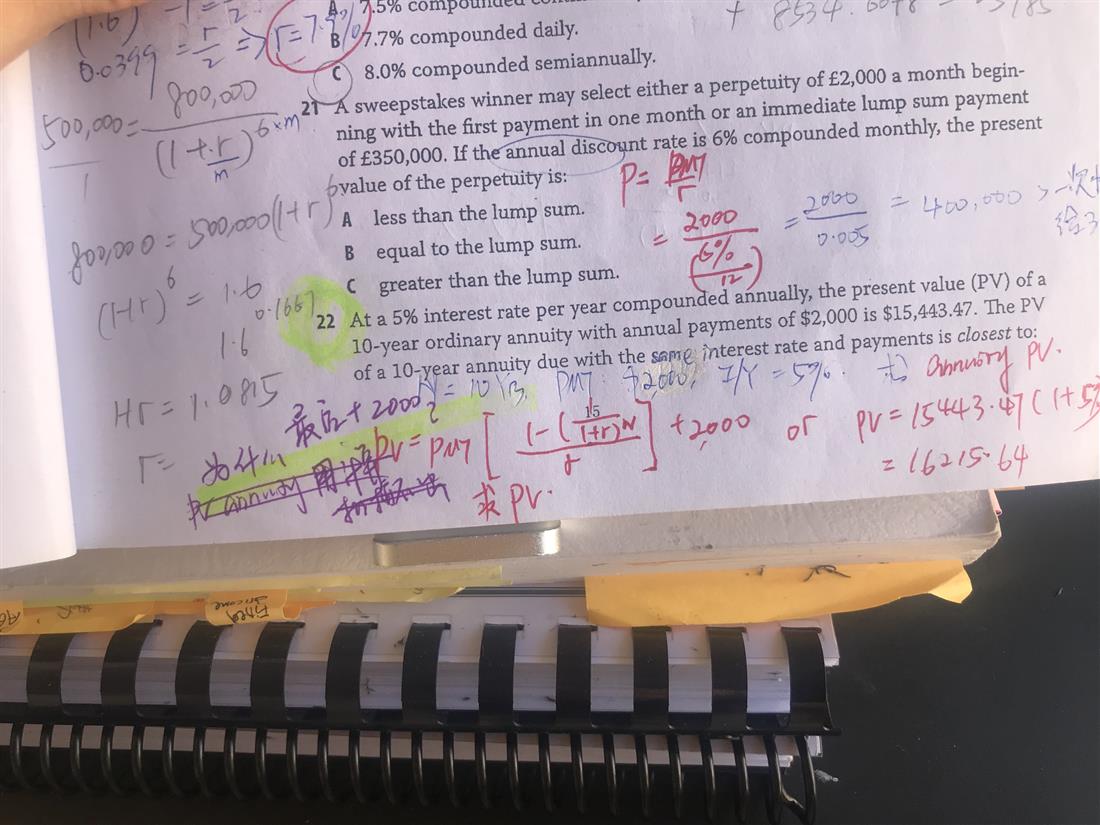 7.5% compounded
B 7.7% compounded daily.
C 8.0% compounded semiannually.
0.0399 = r/2 => r=7.9%
+ 8534.
500,000 = 800,000 / (1+r/m)^6×m
800,000 = 500,000(1+r)^6
(1+r)^6 = 1.6
1.6^0.1667
1+r = 1.0815
r=
21 A sweepstakes winner may select either a perpetuity of £2,000 a month begin-
ning with the first payment in one month or an immediate lump sum payment
of £350,000. If the annual discount rate is 6% compounded monthly, the present
value of the perpetuity is:
A less than the lump sum.
B equal to the lump sum.
C greater than the lump sum.
P = PMT/r
= 2000/(6%/12) = 2000/0.005 = 400,000 >
22 At a 5% interest rate per year compounded annually, the present value (PV) of a
10-year ordinary annuity with annual payments of $2,000 is $15,443.47. The PV
of a 10-year annuity due with the same interest rate and payments is closest to:
N = 10 Yrs, PMT +2000, I/Y = 5%. PV.
最后+2000?
为什么
15
PV = PMT [ (1-(1/(1+r)^N)) / r ] +2,000 or PV = 15443.47(1+5%
求 PV.
= 16215.64
PV annuity
Fixed
income